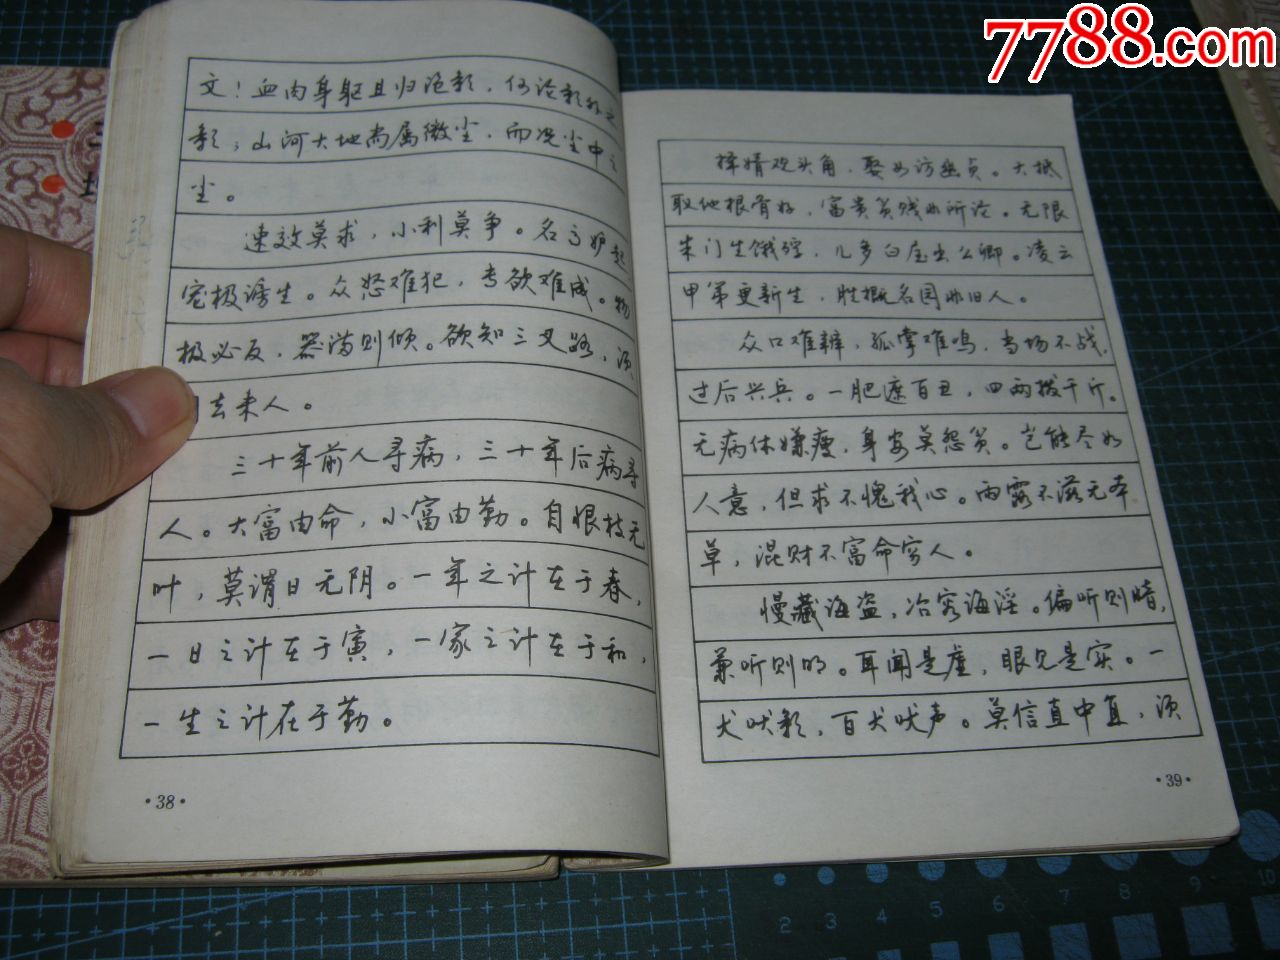 7788.com
文！血肉身躯且归泡影，何论影外之
影；山河大地尚属微尘，而况尘中之
尘。
速效莫求，小利莫争。名高妒起
宠极谤生。众怒难犯，专欲难成。物
极必反，器满则倾。欲知三叉路，须
去来人。
三十年前人寻病，三十年后病寻
人。大富由命，小富由勤。自恨枝无
叶，莫谓日无阴。一年之计在于春，
一日之计在于寅，一家之计在于和，
一生之计在于勤。
·38·
择婿观头角，娶女访幽贞。大抵
取他根骨好，富贵贫贱非所论。无限
朱门生饿殍，几多白屋出公卿。凌云
甲第更新生，胜概名园非旧人。
众口难辩，孤掌难鸣，当场不战，
过后兴兵。一肥遮百丑，四两拨千斤。
无病休嫌瘦，身安莫怨贫。岂能尽如
人意，但求不愧我心。雨露不滋无本
草，混财不富命穷人。
慢藏诲盗，冶容诲淫。偏听则暗，
兼听则明。耳闻是虚，眼见是实。一
犬吠影，百犬吠声。莫信直中直，须
·39·
2 3 4 5 6 7 8 9 10